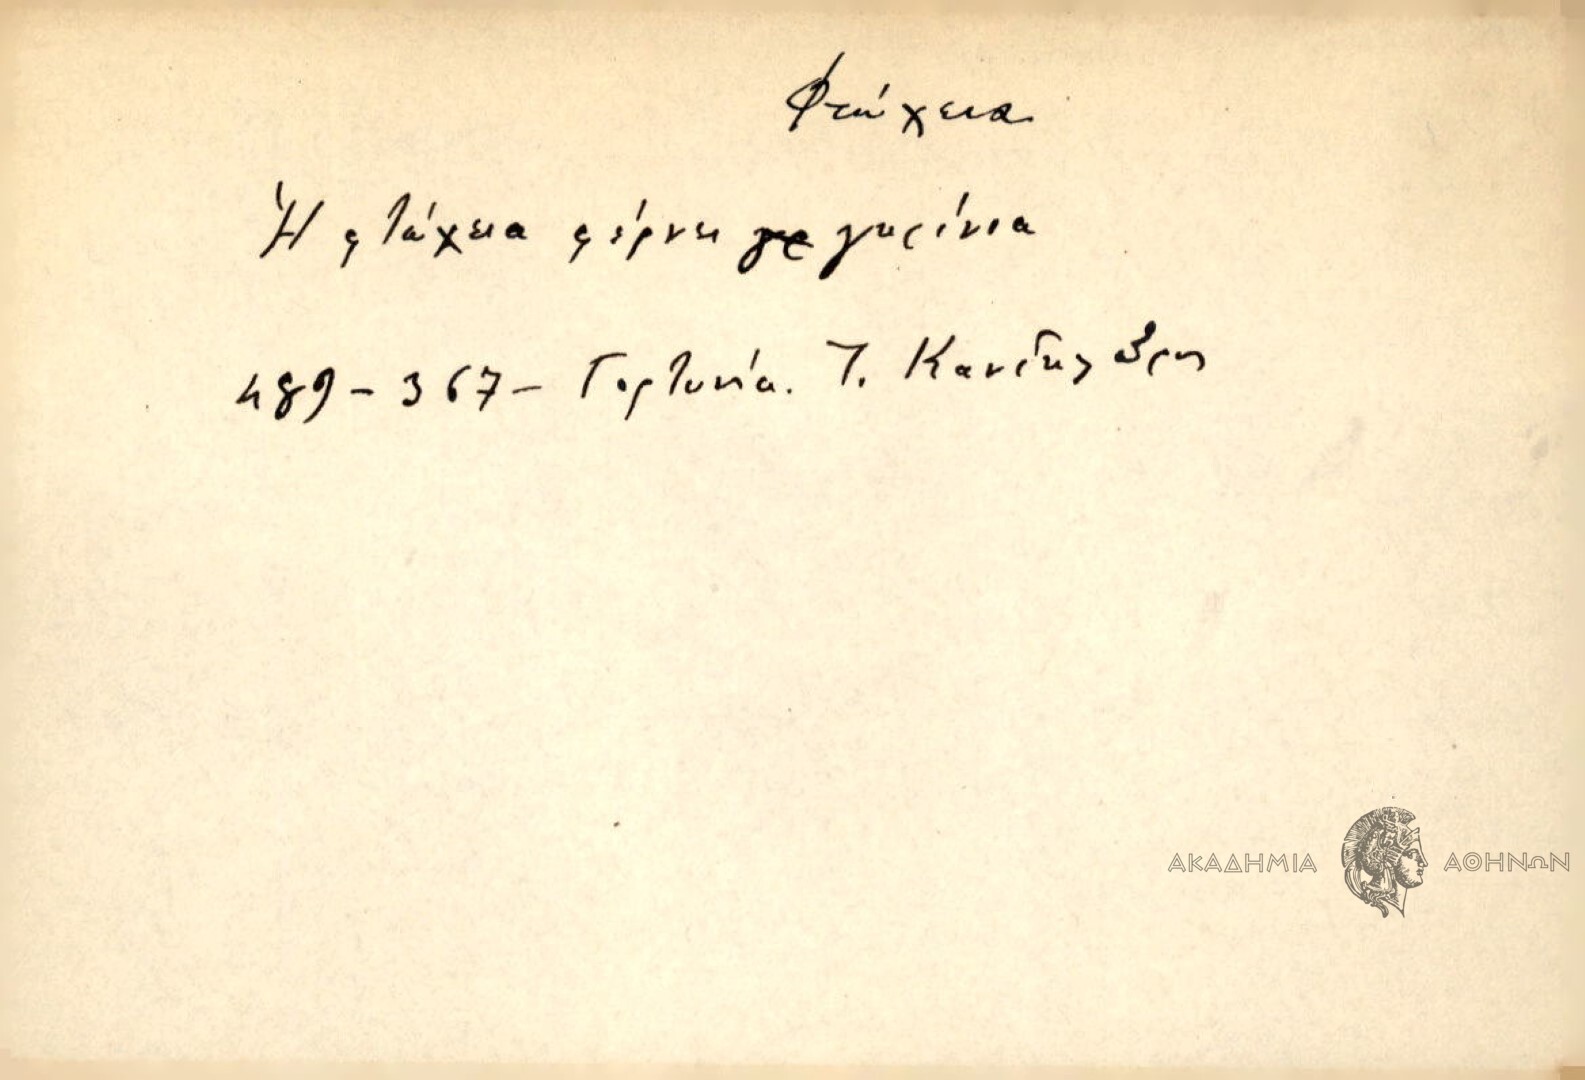 Φτώχεια
Ἡ φτώχεια φέρνει γκρίνια
489 - 367 - Γορτυνία. Τ. Κανδηλώρης
ΑΚΑΔΗΜΙΑ ΑΘΗΝΩΝ